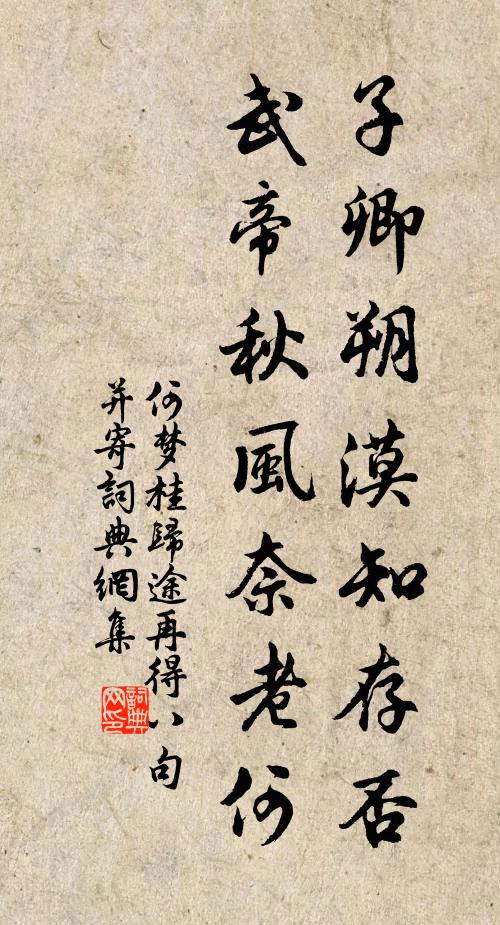 子卿朔漠知存否
武帝秋風奈老何
何梦桂歸途再得八句
并寄詞典網集
詞典网印